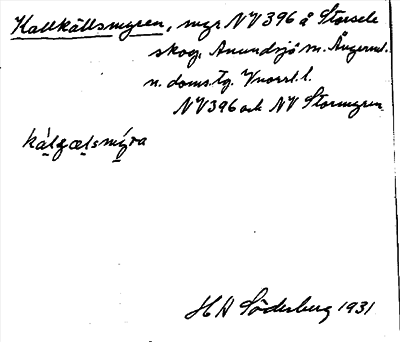 Kallkällsmyren, myr NV 396 å Storsele
skog, Anundsjö sn. Ångerml.
n. doms.tg. Vnorrl. l.
NV 396 och NV Stormyren
kálgælsmýra
H A Söderberg 1931